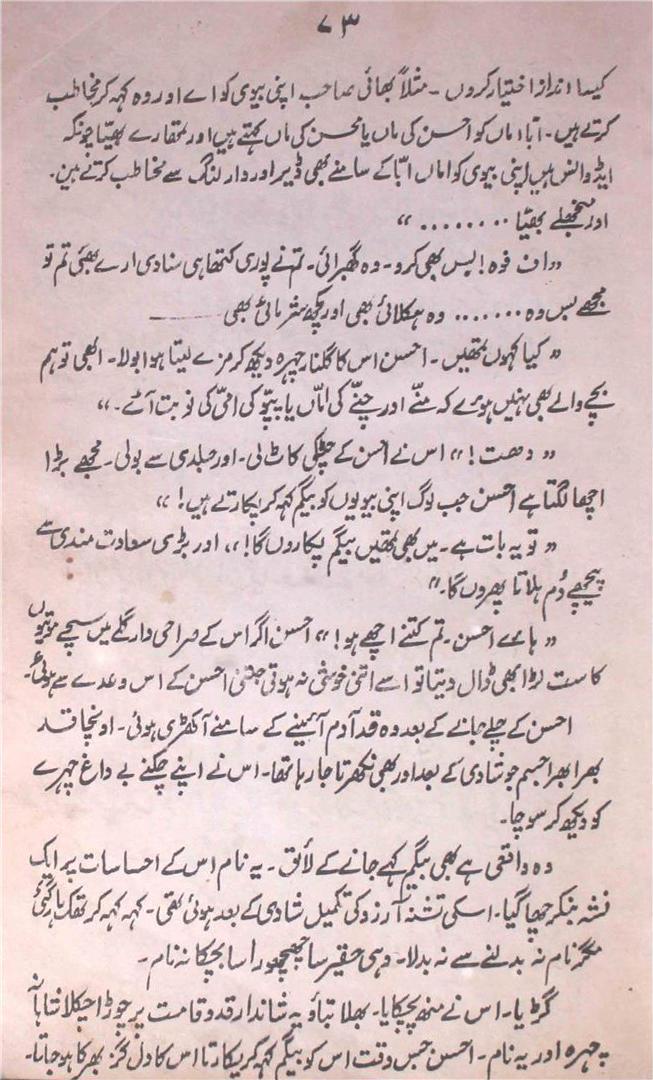 ۷۳
کیسا انداز اختیار کروں ۔ مثلاً بھائی صاحب اپنی بیوی کو اے اور وہ کہہ کر مخاطب
کرتے ہیں ۔ ابّا، ماں کو احسن کی ماں یا محسن کی ماں کہتے ہیں اور تمھارے بھیّا چونکہ
ایڈوانس ہیں اپنی بیوی کو اماں ابّا کے سامنے بھی ڈیر اور دارلنگ سے مخاطب کرتے ہیں ۔
اور منجھلے بھیّا ........ “
” اف فوہ ! بس بھی کرو ۔ وہ گھبرائی ۔ تم نے پوری کتھا ہی سنا دی ارے بھئی تم تو
مجھے بس وہ ....... وہ ہکلائی بھی اور کچھ شرمائی بھی
” کیا کہوں تمھیں ۔ احسن اس کا گلنار چہرہ دیکھ کر مزے لیتا ہوا بولا ۔ ابھی تو ہم
بچے والے بھی نہیں ہوئے کہ منّے اور چنّے کی امّاں یا پپّو کی امّی کی نوبت آئے ۔ “
” دھت ! “ اس نے احسن کے چٹکی کاٹ لی ۔ اور جلدی سے بولی ۔ مجھے بڑا
اچھا لگتا ہے احسن جب لوگ اپنی بیویوں کو بیگم کہہ کر پکارتے ہیں ! “
” تو یہ بات ہے ۔ میں بھی تمھیں بیگم پکاروں گا ! “، اور بڑی سعادت مندی سے
پیچھے دُم ہلاتا پھروں گا ۔ “
” ہائے احسن ۔ تم کتنے اچھے ہو ! “ احسن اگر اس کے صراحی دار گلے میں سچے موتیوں
کا ست لڑا بھی ڈال دیتا تو اسے اتنی خوشی نہ ہوتی جتنی احسن کے اس وعدے سے ہوئی ۔
احسن کے چلے جانے کے بعد وہ قد آدم آئینے کے سامنے آ کھڑی ہوئی ۔ اونچا قد
بھرا بھرا جسم جو شادی کے بعد اور بھی نکھرتا جا رہا تھا ۔ اس نے اپنے چکنے بے داغ چہرے
کو دیکھ کر سوچا ۔
وہ واقعی ہے بھی بیگم کہے جانے کے لائق ۔ یہ نام اس کے احساسات پر ایک
نشہ بنکر چھا گیا ۔ اسکی تشنہ آرزو کی تکمیل شادی کے بعد ہوئی تھی ۔ کہہ کہہ کر تھک ہار گئی
مگر نام نہ بدلنے سے نہ بدلا ۔ وہی حقیر سا چھچھورا سا بچکانہ نام ۔
گڑیا ۔ اس نے منھ پچکایا ۔ بھلا بتاؤ یہ شاندار قد و قامت پر چوڑا چکلا
چہرہ اور یہ نام ۔ احسن جس وقت اس کو بیگم کہہ کر پکارتا اس کا دل گز بھر کا ہو جاتا ۔